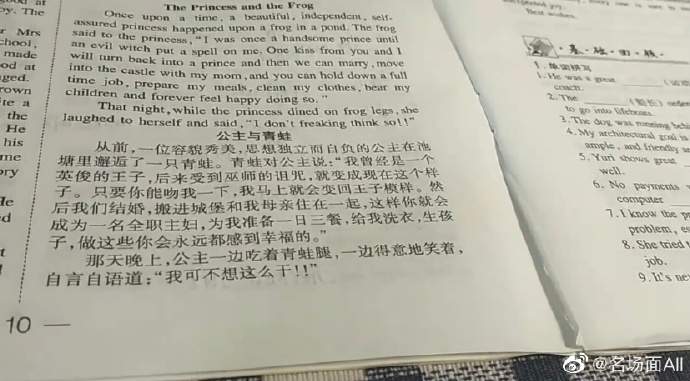 The Princess and the Frog
Once upon a time, a beautiful, independent, self-
assured princess happened upon a frog in a pond. The frog
said to the princess, "I was once a handsome prince until
an evil witch put a spell on me. One kiss from you and I
will turn back into a prince and then we can marry, move
into the castle with my mom, and you can hold down a full
time job, prepare my meals, clean my clothes, bear my
children and forever feel happy doing so."
That night, while the princess dined on frog legs, she
laughed to herself and said, "I don't freaking think so!!"
公主与青蛙
从前,一位容貌秀美,思想独立而自负的公主在池
塘里邂逅了一只青蛙。青蛙对公主说:“我曾经是一个
英俊的王子,后来受到巫师的诅咒,就变成现在这个样
子。只要你能吻我一下,我马上就会变回王子模样。然
后我们结婚,搬进城堡和我母亲住在一起,这样你就会
成为一名全职主妇,为我准备一日三餐,给我洗衣,生孩
子,做这些你会永远都感到幸福的。”
那天晚上,公主一边吃着青蛙腿,一边得意地笑着,
自言自语道:“我可不想这么干!!”
10 —
y. The
Mrs
chool,
made
ood at
ged.
rown
ite a
the
He
his
me
ory
Best wishes.
基·础·回·顾
1. 单词拼写
1. He was a great
coach.
2. The
to go into lifeboats.
3. The dog was running behind
4. My architectural goal is
ample, and friendly an
5. Yuri shows great
well.
6. No payments
computer
7. I know the pr
problem, es
8. She tried t
job.
9. It's ne
@名场面All